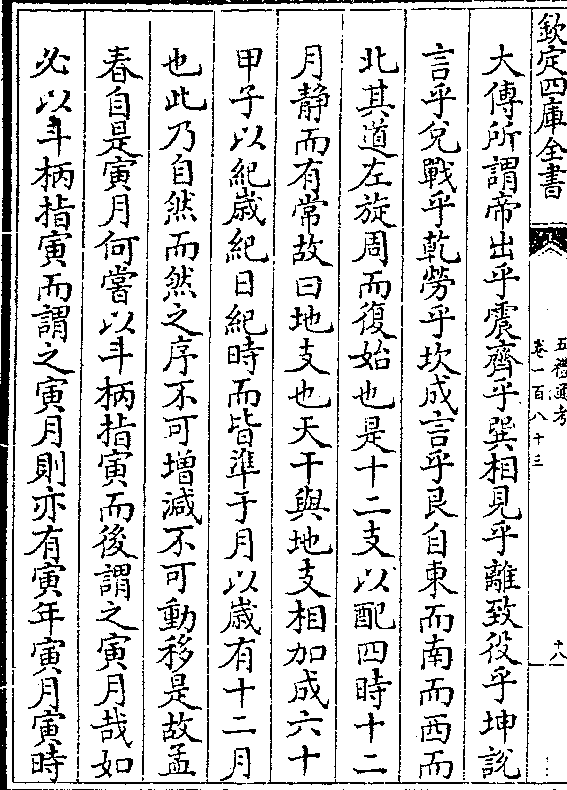 欽定四庫全書
五禮通考
卷一百八十三
十八
大傳所謂帝出乎震齊乎巽相見乎離致役乎坤說
言乎兌戰乎乾勞乎坎成言乎艮自東而南而西而
北其道左旋周而復始也是十二支以配四時十二
月静而有常故曰地支也天干與地支相加成六十
甲子以紀歲紀日紀時而皆準于月以歲有十二月
也此乃自然而然之序不可增減不可動移是故孟
春自是寅月何嘗以斗柄指寅而後謂之寅月哉如
必以斗柄指寅而謂之寅月則亦有寅年寅月寅時